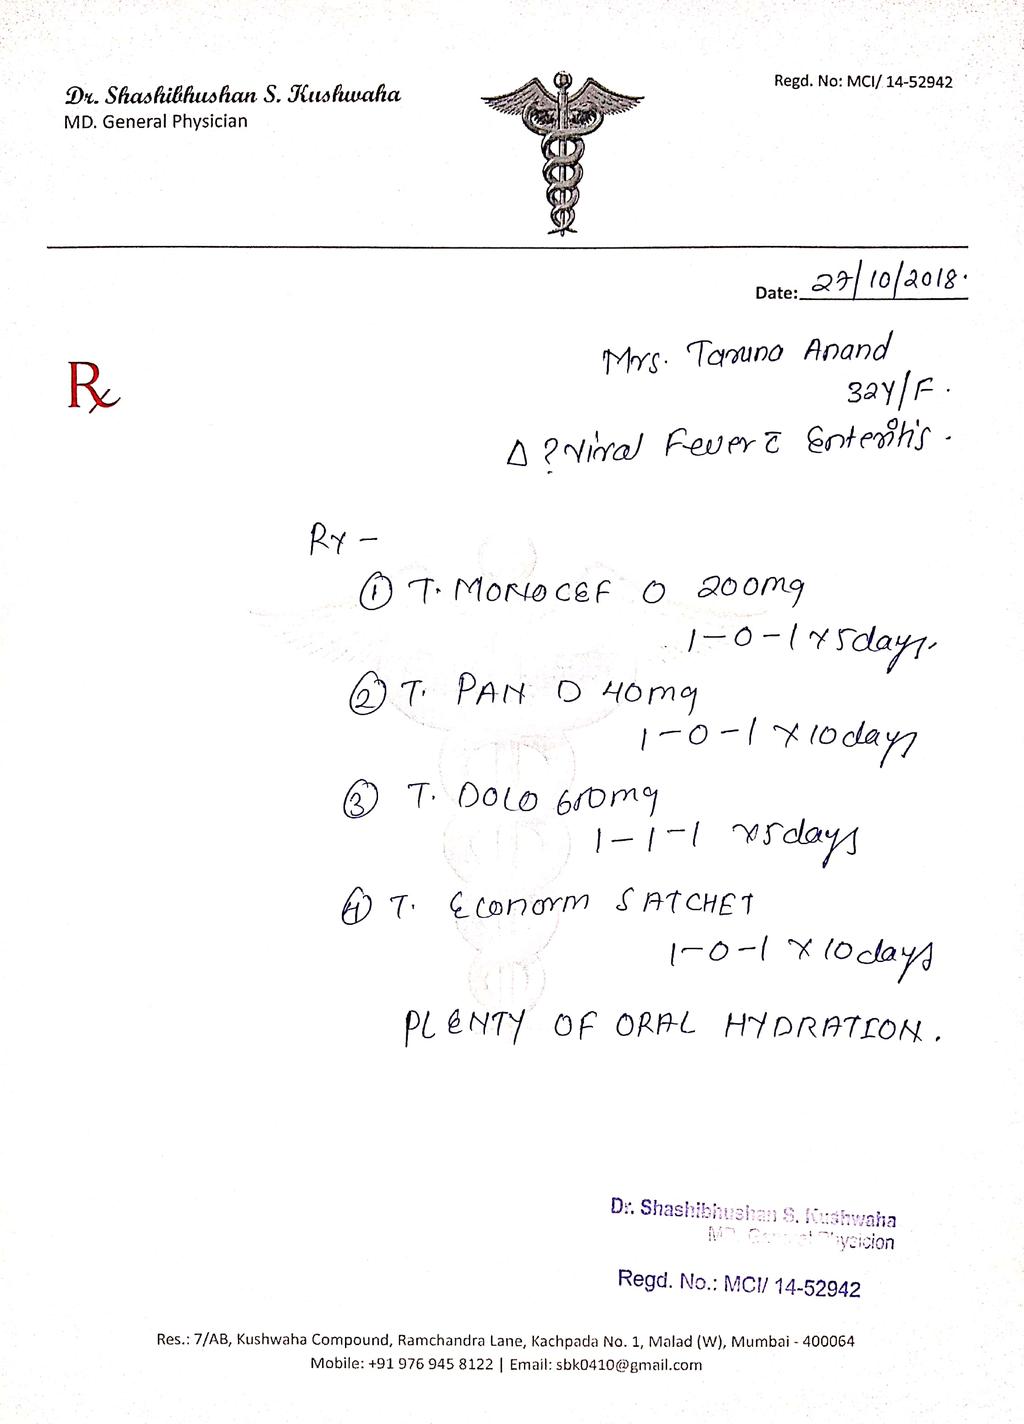 Dr. Shashibhushan S. Kushwaha
MD. General Physician
Regd. No: MCI/ 14-52942
Date: 27/10/2018.
Rx
Mrs. Taruna Anand
32Y/F.
Δ ? Viral Fever c̄ Enteritis.
RX -
① T. MONOCEF O 200mg
1-0-1 x 5days.
② T. PAN D 40mg
1-0-1 x 10days
③ T. DOLO 650mg
1-1-1 x5days
④ T. Econorm SATCHET
1-0-1 x 10days
PLENTY OF ORAL HYDRATION.
Dr. Shashibhushan S. Kushwaha
MD. General Physicion
Regd. No.: MCI/ 14-52942
Res.: 7/AB, Kushwaha Compound, Ramchandra Lane, Kachpada No. 1, Malad (W), Mumbai - 400064
Mobile: +91 976 945 8122 | Email: sbk0410@gmail.com